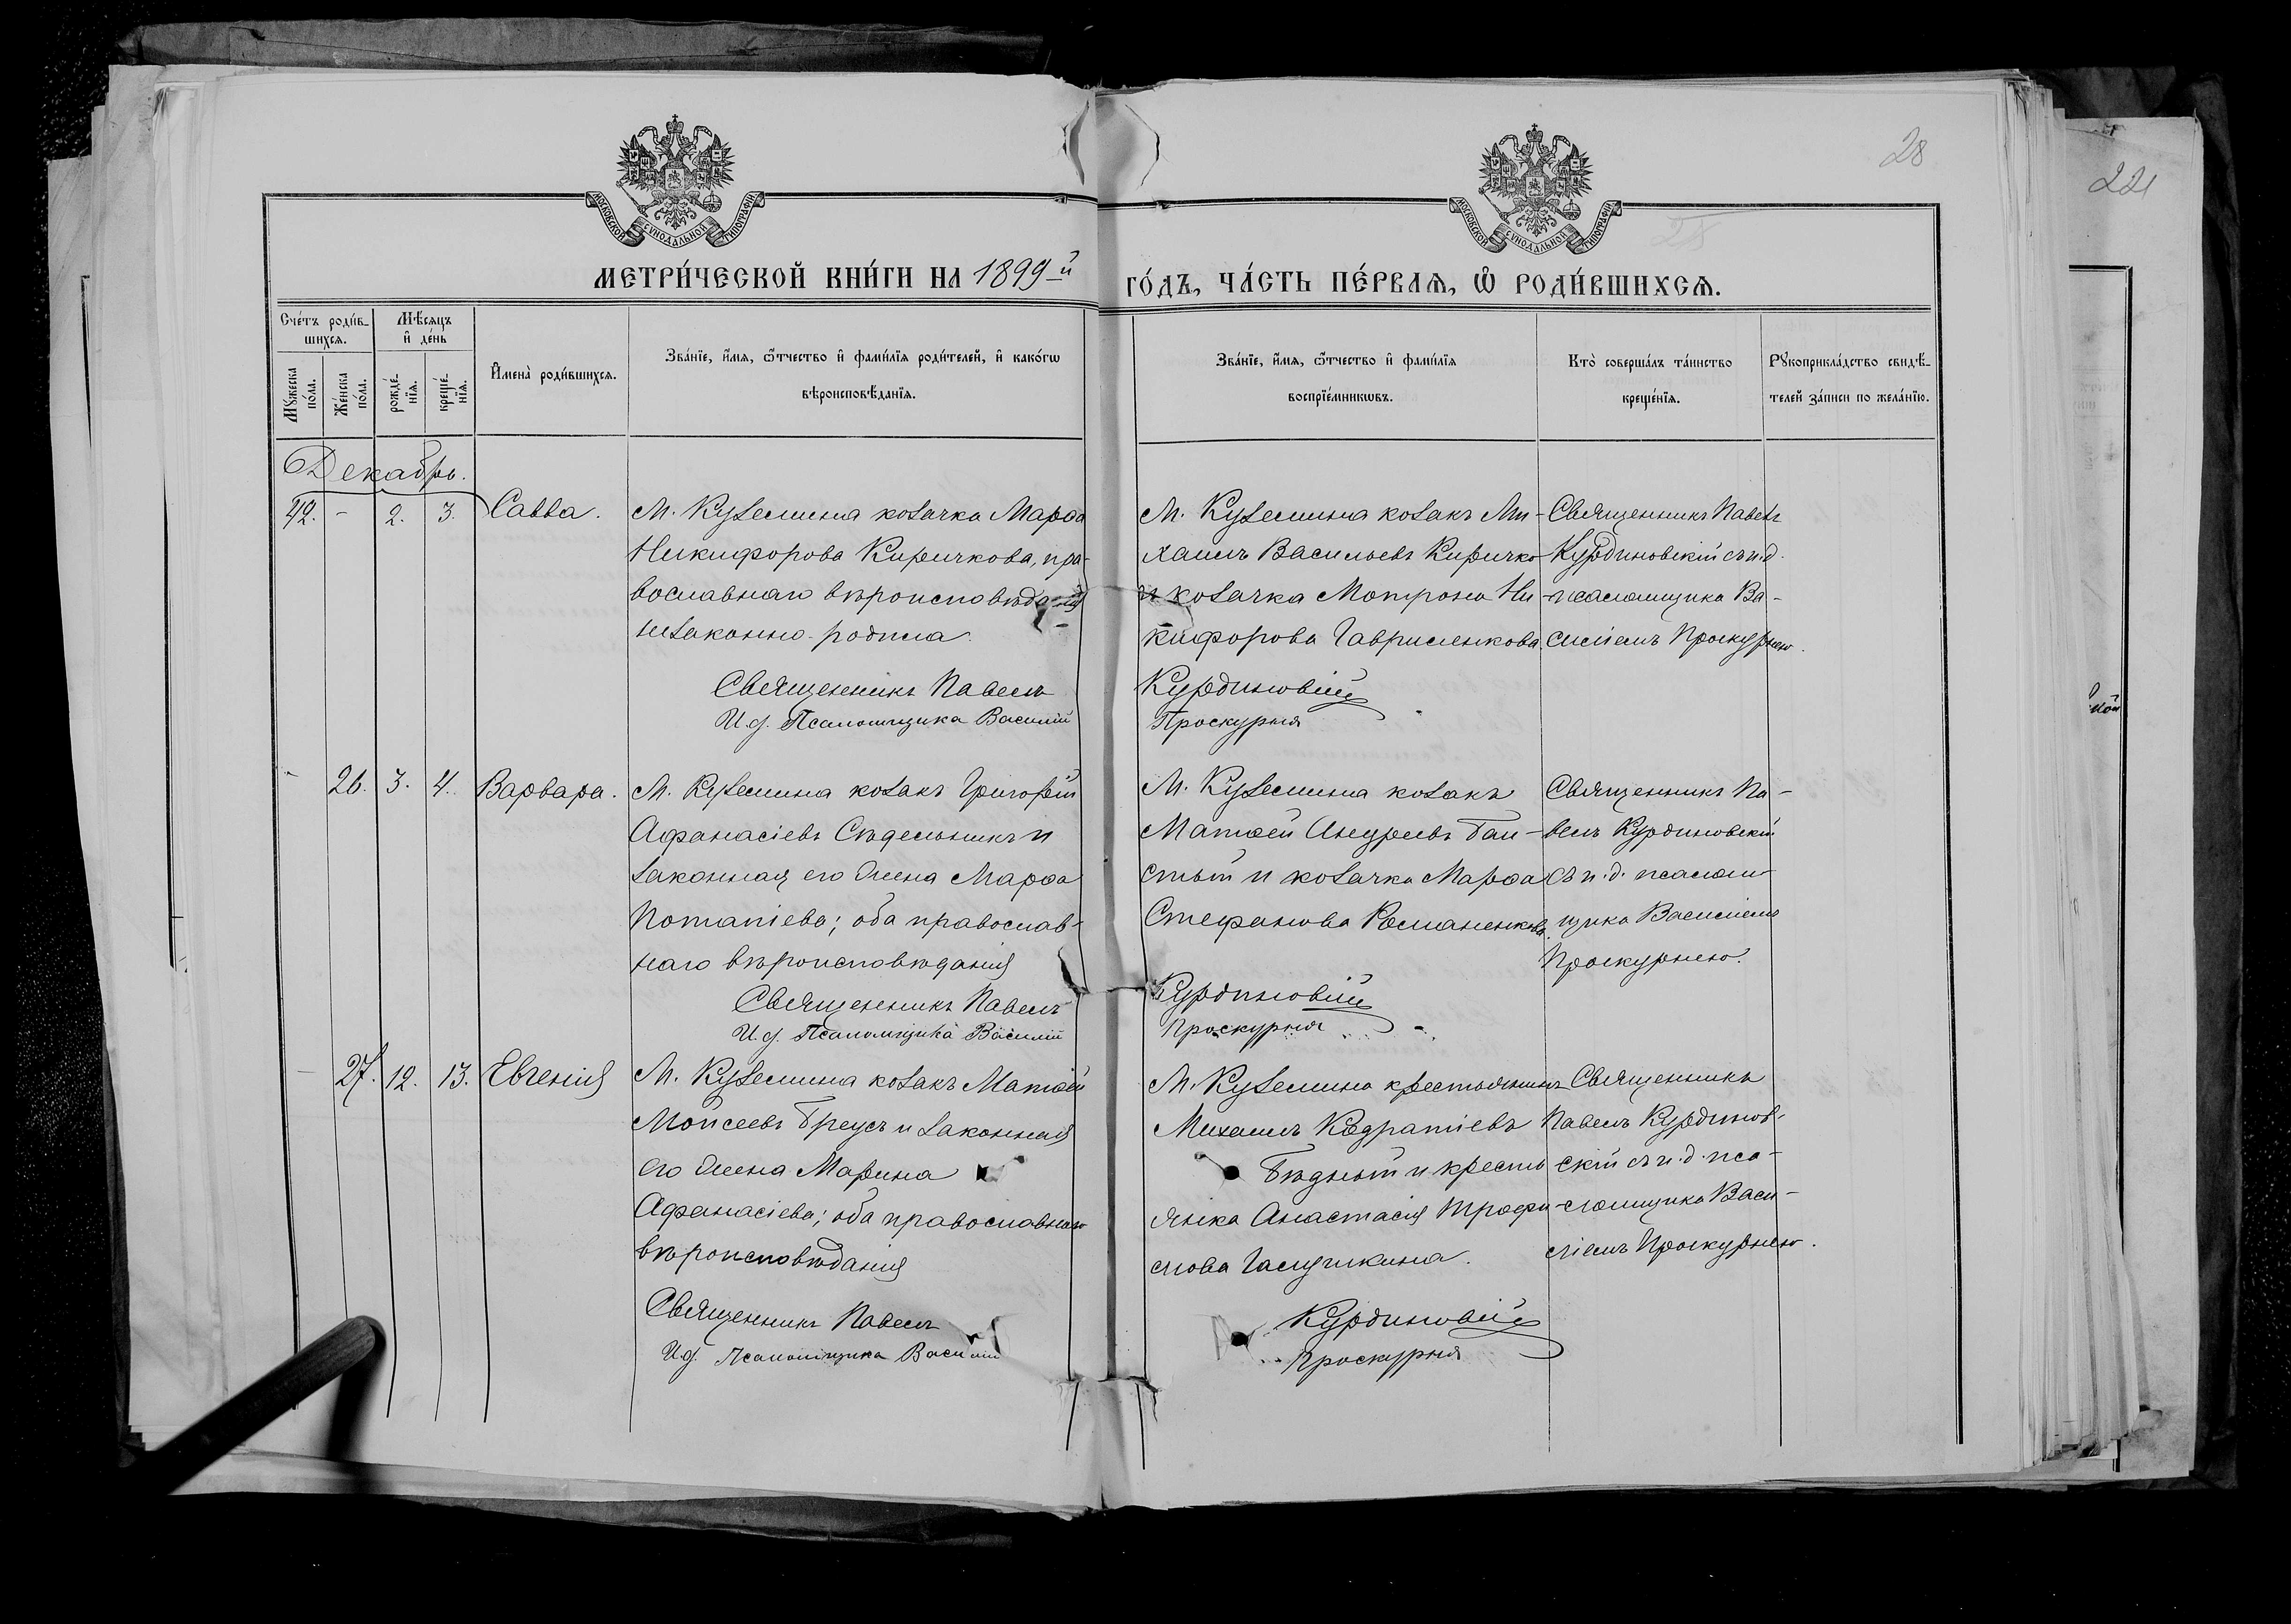 28
221
28
МОСКОВСКОЙ СѴНОДАЛЬНОЙ ТИПОГРАФІИ
МОСКОВСКОЙ СѴНОДАЛЬНОЙ ТИПОГРАФІИ
МЕТРИ́ЧЕСКОЙ КНИ́ГИ НА 1899-й
ГО́ДЪ, ЧА́СТЬ ПЕ́РВАѦ, Ѽ РОДИ́ВШИХСѦ.
Сче́тъ роди́в-
шихсѧ.
Мѣ́сѧцъ
и҆ де́нь
Мꙋ́жеска
по́ла.
Же́нска
по́ла.
рожде́-
нїѧ.
креще́-
нїѧ.
И҆мена̀ роди́вшихсѧ.
Зва́нїе, и҆́мѧ, ѻ҆́тчество и҆ фами́лїѧ роди́телей, и҆ како́гѡ
вѣроисповѣ́данїѧ.
Зва́нїе, и҆́мѧ, ѻ҆́тчество и҆ фами́лїѧ
воспрїе́мникѡвъ.
Кто̀ соверша́лъ та́инство
креще́нїѧ.
Рꙋкоприкла́дство свидѣ́-
телей за́писи по жела́нїю.
Декабрь.
42. - 2. 3. Савва.
М. Куземина козачка Марѳа
Никифорова Киричкова, пра-
вославнаго вѣроисповѣданія
незаконно-родила.
Священникъ Павелъ
И.д. Псаломщика Василій
М. Куземина козакъ Ми-
хаилъ Васильевъ Киричко
и козачка Мотрона Ни-
кифорова Гавриленкова.
Курдиновскій
Проскурня
Священникъ Павелъ
Курдиновскій съ и.д.
псаломщика Ва-
силіемъ Проскурнею.
- 26. 3. 4. Варвара.
М. Куземина козакъ Григорій
Афанасіевъ Сѣдельникъ и
законная его жена Марѳа
Потапіева; оба православ-
наго вѣроисповѣданія
Священникъ Павелъ
И.д. Псаломщика Василій
М. Куземина козакъ
Матѳей Андреевъ Тол-
стый и козачка Марѳа
Стефанова Романенкова.
Курдиновскій
Проскурня
Священникъ Па-
велъ Курдиновскій
съ и.д. псалом-
щика Василіемъ
Проскурнею.
- 27. 12. 13. Евгенія
М. Куземина козакъ Матѳей
Мойсеевъ Треусъ и законная
его жена Марина
Афанасіева; оба православнаго
вѣроисповѣданія
Священникъ Павелъ
И.д. Псаломщика Василій
М. Куземина крестьянинъ
Михаилъ Кодратіевъ
Бѣдный и кресть
янка Анастасія Трофи-
мова Галушкина.
Курдиновскій
Проскурня
Священникъ
Павелъ Курдинов-
скій съ и.д. пса-
ломщика Васи-
ліемъ Проскурнею.